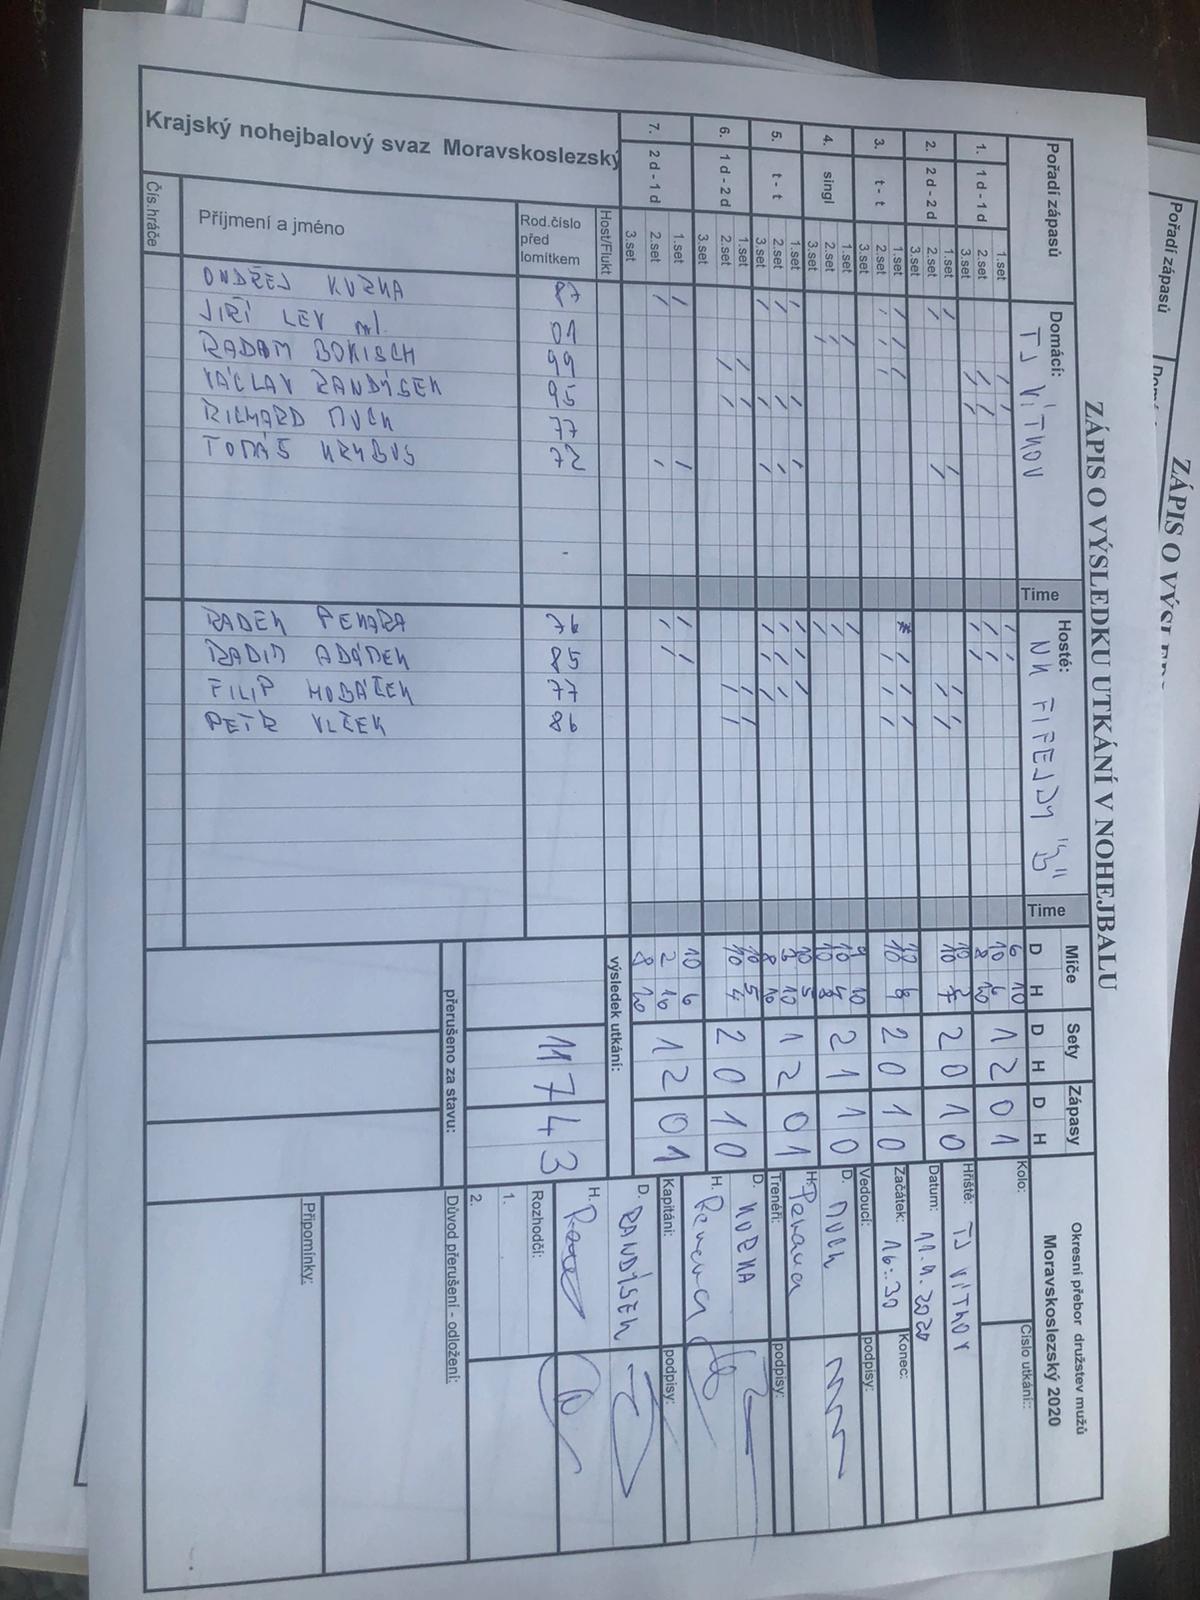 ZÁPIS O VÝSLEDKU UTKÁNÍ V NOHEJBALU
Pořadí zápasů
Domácí: TJ VÍTKOV
Time
Hosté: NK FIFEJDY "B"
Time
Míče Sety Zápasy
D H D H D H
Okresní přebor družstev mužů
Moravskoslezský 2020
1. 1 d - 1 d
1.set 6 10
2.set 10 6
3.set 8 10
1 2 0 1
2. 2 d - 2 d
1.set
2.set
3.set
2 0 1 0
3. t - t
1.set
2.set
3.set
2 0 1 0
4. singl
1.set 9 10
2.set
3.set 10 8
2 1 1 0
5. t - t
1.set 10 5
2.set
3.set 8 10
1 2 0 1
6. 1 d - 2 d
1.set 10 5
2.set 10 4
3.set
2 0 1 0
7. 2 d - 1 d
1.set 10 6
2.set 2 10
3.set 8 10
1 2 0 1
Kolo:
Číslo utkání:
Hřiště: TJ VÍTKOV
Datum: 11.9.2020
Začátek: 16:30
Konec:
Vedoucí: podpisy:
D. MUCH
H. Pekara
Trenéři: podpisy:
D. KURKA
H. Pekara
Kapitáni: podpisy:
D. RANDÝSEK
H.
Rozhodčí:
1.
2.
Krajský nohejbalový svaz Moravskoslezský
Host/Flukt
výsledek utkání:
11 7 4 3
Čís.hráče
Příjmení a jméno
Rod.číslo
před
lomítkem
ONDŘEJ KURKA 87
JIŘÍ LEV ml. 01
RADIM BOKISCH 99
VÁCLAV RANDÝSEK 95
RICHARD MUCH 77
TOMÁŠ 72
RADEK PEKARA 76
RADIM ADÁMEK 85
FILIP HORÁČEK 77
PETR VLČEK 86
přerušeno za stavu:
Důvod přerušení - odložení:
Připomínky:
Pořadí zápasů
ZÁPIS O